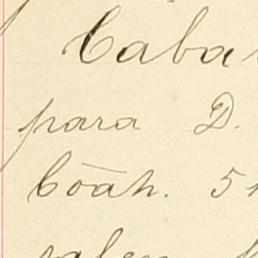 Caba
para D.
Cōah. 5